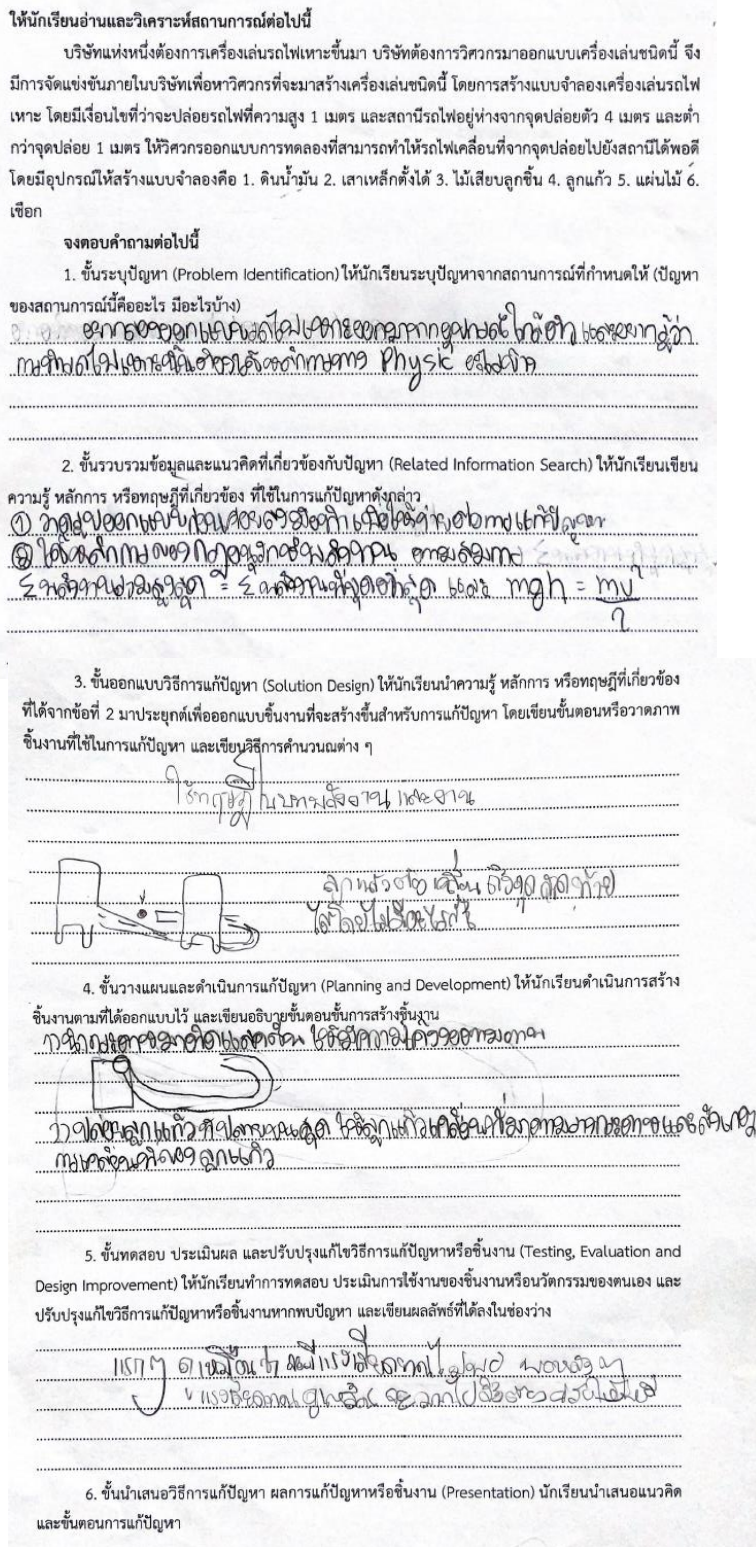 ให้นักเรียนอ่านและวิเคราะห์สถานการณ์ต่อไปนี้
บริษัทแห่งหนึ่งต้องการเครื่องเล่นรถไฟเหาะขึ้นมา บริษัทต้องการวิศวกรมาออกแบบเครื่องเล่นชนิดนี้ จึง
มีการจัดแข่งขันภายในบริษัทเพื่อหาวิศวกรที่จะมาสร้างเครื่องเล่นชนิดนี้ โดยการสร้างแบบจำลองเครื่องเล่นรถไฟ
เหาะ โดยมีเงื่อนไขที่ว่าจะปล่อยรถไฟที่ความสูง 1 เมตร และสถานีรถไฟอยู่ห่างจากจุดปล่อยตัว 4 เมตร และต่ำ
กว่าจุดปล่อย 1 เมตร ให้วิศวกรออกแบบการทดลองที่สามารถทำให้รถไฟเคลื่อนที่จากจุดปล่อยไปยังสถานีได้พอดี
โดยมีอุปกรณ์ให้สร้างแบบจำลองคือ 1. ดินน้ำมัน 2. เสาเหล็กตั้งได้ 3. ไม้เสียบลูกชิ้น 4. ลูกแก้ว 5. แผ่นไม้ 6.
เชือก
จงตอบคำถามต่อไปนี้
1. ขั้นระบุปัญหา (Problem Identification) ให้นักเรียนระบุปัญหาจากสถานการณ์ที่กำหนดให้ (ปัญหา
ของสถานการณ์นี้คืออะไร มีอะไรบ้าง)
และอยากรู้ว่า
การทำรถไฟเหาะ Physic อะไรบ้าง
2. ขั้นรวบรวมข้อมูลและแนวคิดที่เกี่ยวข้องกับปัญหา (Related Information Search) ให้นักเรียนเขียน
ความรู้ หลักการ หรือทฤษฎีที่เกี่ยวข้อง ที่ใช้ในการแก้ปัญหาดังกล่าว
① วาดรูปออกแบบก่อน เพื่อให้ง่ายต่อการแก้ปัญหา
② ใช้หลักการของกฎอนุรักษ์พลังงาน ตามสมการ
Σพลังงานรวมสูงสุด = Σพลังงานที่จุดต่ำสุด และ mgh = mv²/2
3. ขั้นออกแบบวิธีการแก้ปัญหา (Solution Design) ให้นักเรียนนำความรู้ หลักการ หรือทฤษฎีที่เกี่ยวข้อง
ที่ได้จากข้อที่ 2 มาประยุกต์เพื่อออกแบบชิ้นงานที่จะสร้างขึ้นสำหรับการแก้ปัญหา โดยเขียนขั้นตอนหรือวาดภาพ
ชิ้นงานที่ใช้ในการแก้ปัญหา และเขียนวิธีการคำนวนณต่าง ๆ
ใช้ทฤษฎีในบทพลังงานและงาน
ลูกแก้วต้องเคลื่อนถึงจุดสุดท้าย
ได้โดยไม่มีอะไรกั้น
4. ขั้นวางแผนและดำเนินการแก้ปัญหา (Planning and Development) ให้นักเรียนดำเนินการสร้าง
ชิ้นงานตามที่ได้ออกแบบไว้ และเขียนอธิบายขั้นตอนขั้นการสร้างชิ้นงาน
ให้มีความโค้งงอตาม
ปล่อยลูกแก้ว ให้ลูกแก้วเคลื่อนที่
การเคลื่อนที่ของลูกแก้ว
5. ขั้นทดสอบ ประเมินผล และปรับปรุงแก้ไขวิธีการแก้ปัญหาหรือชิ้นงาน (Testing, Evaluation and
Design Improvement) ให้นักเรียนทำการทดสอบ ประเมินการใช้งานของชิ้นงานหรือนวัตกรรมของตนเอง และ
ปรับปรุงแก้ไขวิธีการแก้ปัญหาหรือชิ้นงานหากพบปัญหา และเขียนผลลัพธ์ที่ได้ลงในช่องว่าง
แรกๆ ดูเหมือนว่าจะมีแรงเสียดทานไม่พอ พอหลังๆ
แรงเสียดทาน
6. ขั้นนำเสนอวิธีการแก้ปัญหา ผลการแก้ปัญหาหรือชิ้นงาน (Presentation) นักเรียนนำเสนอแนวคิด
และขั้นตอนการแก้ปัญหา